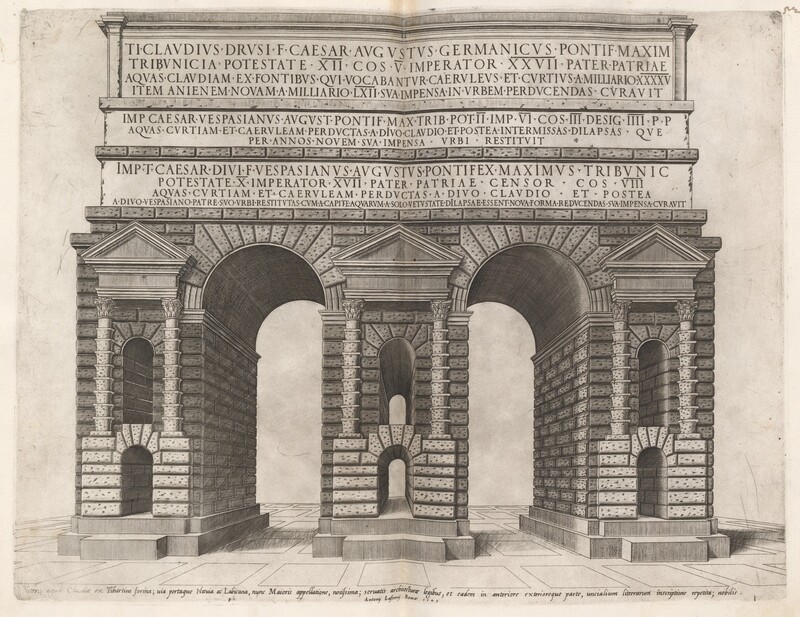 TI·CLAVDIVS·DRVSI·F·CAESAR·AVGVSTVS·GERMANICVS·PONTIF·MAXIM
TRIBVNICIA·POTESTATE·XII·COS·V·IMPERATOR·XXVII·PATER·PATRIAE
AQVAS·CLAVDIAM·EX·FONTIBVS·QVI·VOCABANTVR·CAERVLEVS·ET·CVRTIVS·A·MILLIARIO·XXXXV
ITEM·ANIENEM·NOVAM·A·MILLIARIO·LXII·SVA·IMPENSA·IN·VRBEM·PERDVCENDAS·CVRAVIT
IMP·CAESAR·VESPASIANVS·AVGVST·PONTIF·MAX·TRIB·POT·II·IMP·VI·COS·III·DESIG·IIII·P·P
AQVAS·CVRTIAM·ET·CAERVLEAM·PERDVCTAS·A·DIVO·CLAVDIO·ET·POSTEA·INTERMISSAS·DILAPSAS·QVE
PER·ANNOS·NOVEM·SVA·IMPENSA·VRBI·RESTITVIT
IMP·T·CAESAR·DIVI·F·VESPASIANVS·AVGVSTVS·PONTIFEX·MAXIMVS·TRIBVNIC
POTESTATE·X·IMPERATOR·XVII·PATER·PATRIAE·CENSOR·COS·VIII
AQVAS·CVRTIAM·ET·CAERVLEAM·PERDVCTAS·A·DIVO·CLAVDIO·ET·POSTEA
A·DIVO·VESPASIANO·PATRE·SVO·VRBI·RESTITVTAS·CVM·A·CAPITE·AQVARVM·A·SOLO·VETVSTATE·DILAPSAE·ESSENT·NOVA·FORMA·REDVCENDAS·SVA·IMPENSA·CVRAVIT
Claudiæ ex Tiburtina forma; uia portaque Næuia ac Labicana, nunc Maioris appellatione, notissima; seruatis architecturæ legibus, et eadem in anteriore exterioreque parte, uncialium litterarum inscriptione repetita; nobilis.